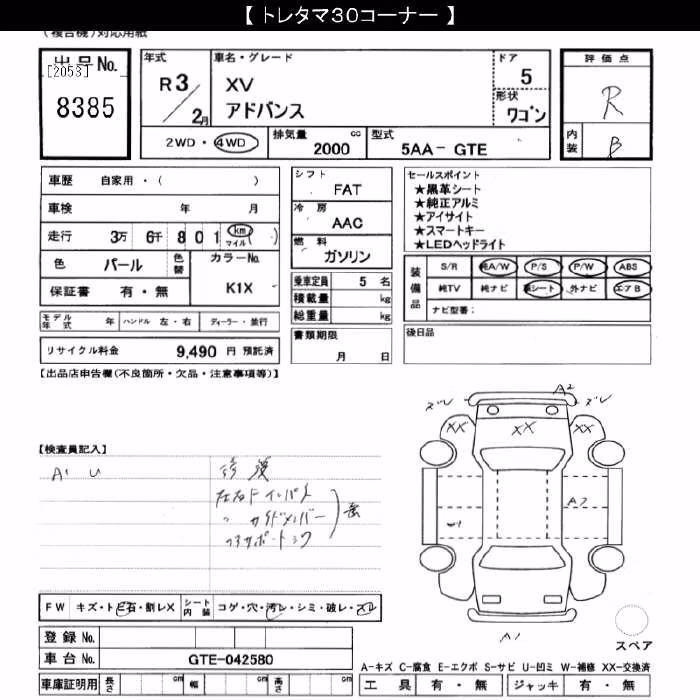 【 トレタマ30コーナー 】
(複合機)対応用紙
出品No.
[2053]
8385
年式
R3/2月
車名・グレード
XV
アドバンス
ドア
5
形状
ワゴン
2WD・4WD
排気量
2000
cc
型式
5AA- GTE
評価点
R
内装
B
車歴 自家用・( )
車検 年 月
走行 3万 6千 801 km マイル ( )
色 パール 色替
カラーNo.
K1X
保証書 有・無
モデル年式 年 ハンドル 左・右 ディーラー・並行
リサイクル料金 9,490 円 預託済
シフト
FAT
冷房
AAC
燃料
ガソリン
乗車定員 5 名
積載量 kg
総重量 kg
書類期限
月 日
セールスポイント
★黒革シート
★純正アルミ
★アイサイト
★スマートキー
★LEDヘッドライト
装備品
S/R 純A/W P/S P/W ABS
純TV 純ナビ 革シート 外ナビ エアB
ナビ型番:
後日品
【出品店申告欄(不良箇所・欠品・注意事項等)】
【検査員記入】
A1 U
左右Fインパネ
〃 サイドメンバー
コアサポートシワ
ズレ
A2
ズレ
XX
XX
XX
A2
A1
FW キズ・トビ石・割レX シート内装 コゲ・穴・汚レ・シミ・破レ・スレ
登録No.
車台No. GTE-042580
車庫証明用 長さ cm 幅 cm 高さ cm
スペア
A-キズ C-腐食 E-エクボ S-サビ U-凹ミ W-補修 XX-交換済
工具 有・無 ジャッキ 有・無